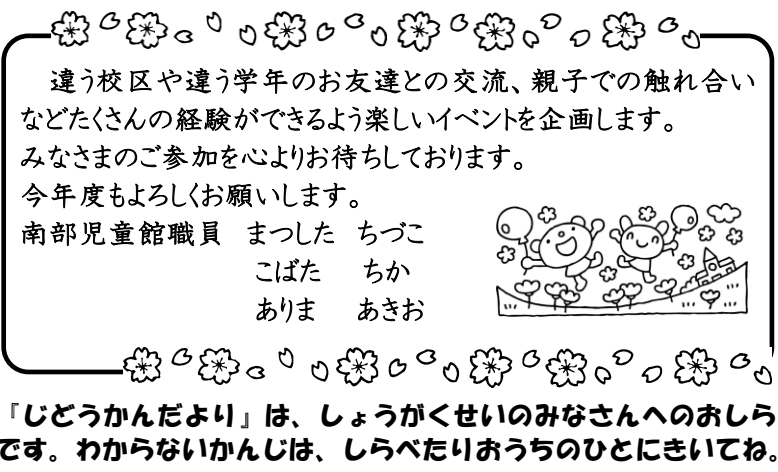 違う校区や違う学年のお友達との交流、親子での触れ合い
などたくさんの経験ができるよう楽しいイベントを企画します。
みなさまのご参加を心よりお待ちしております。
今年度もよろしくお願いします。
南部児童館職員　まつした　ちづこ
こばた　ちか
ありま　あきお
『じどうかんだより』は、しょうがくせいのみなさんへのおしら
です。わからないかんじは、しらべたりおうちのひとにきいてね。